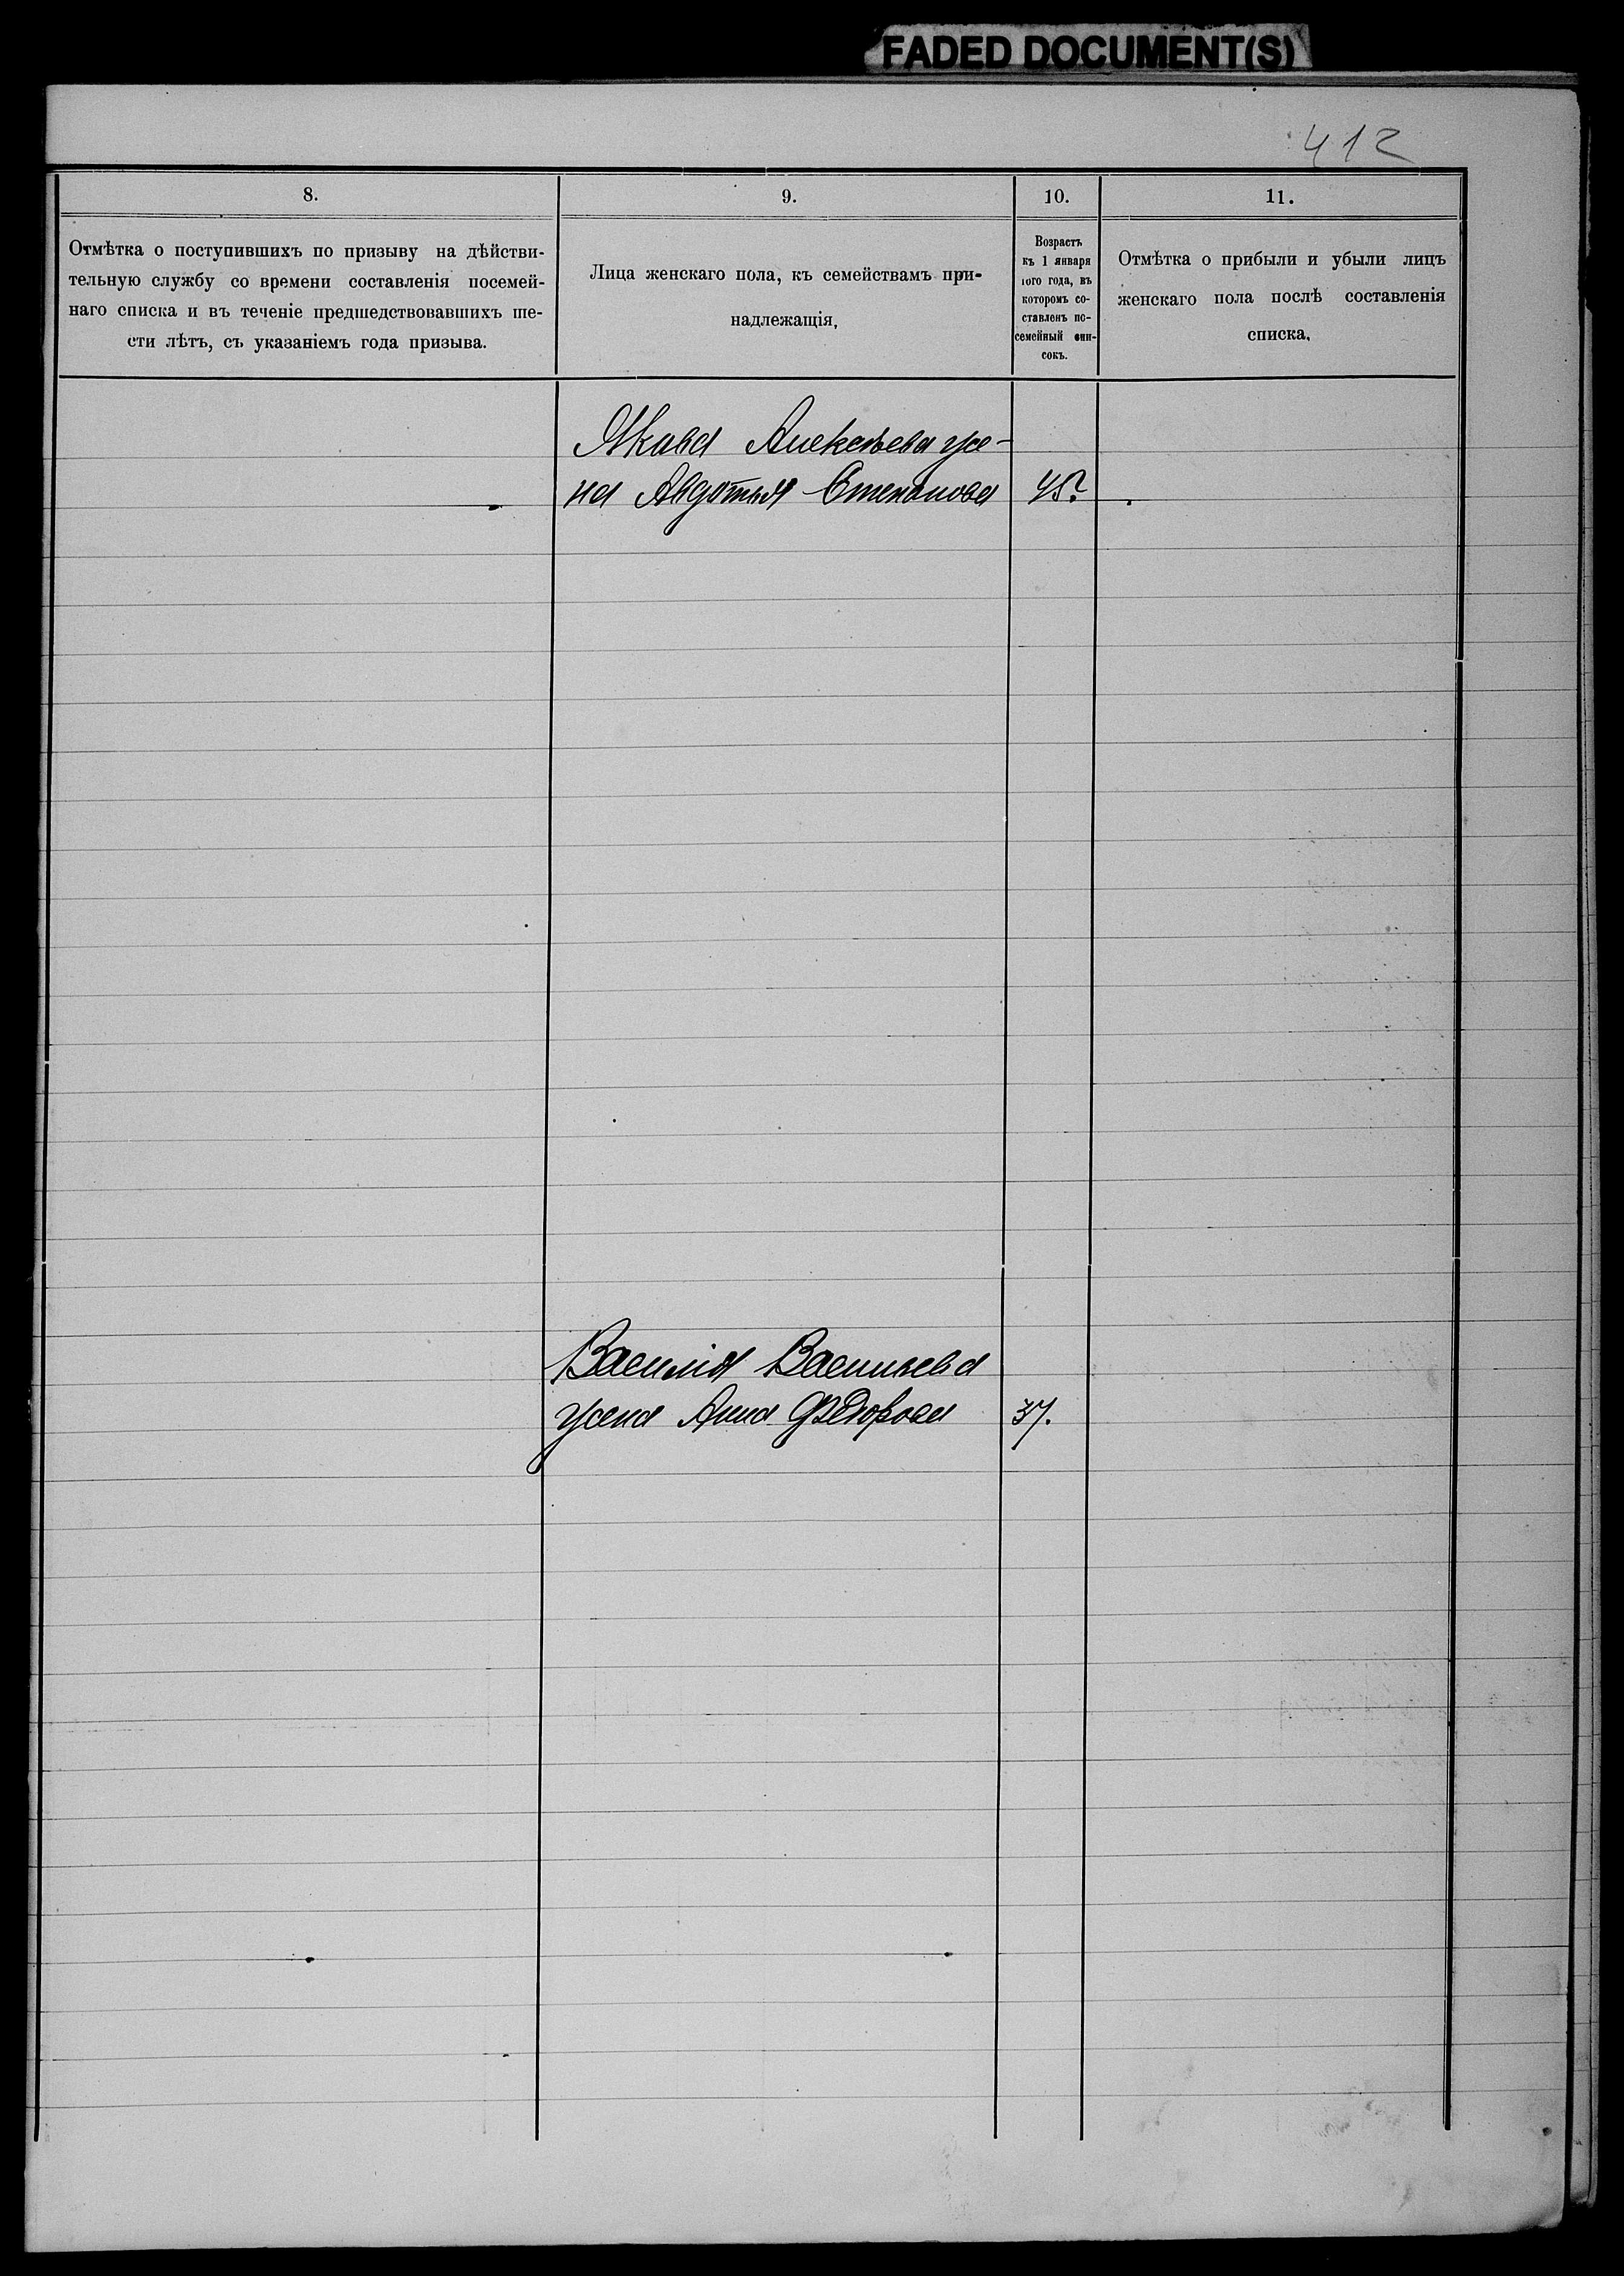 FADED DOCUMENT(S)
412
8.
Отмѣтка о поступившихъ по призыву на дѣйстви-
тельную службу со времени составленія посемей-
наго списка и въ теченіе предшедствовавшихъ ше-
сти лѣтъ, съ указаніемъ года призыва.
9.
Лица женскаго пола, къ семействамъ при-
надлежащія,
10.
Возрастъ
къ 1 января
того года, въ
которомъ со-
ставленъ по-
семейный спи-
сокъ.
11.
Отмѣтка о прибыли и убыли лицъ
женскаго пола послѣ составленія
списка.
Якова Алексѣева же-
на Авдотья Степанова 45?
Василія Васильева
жена Анна Ѳедорова 37.